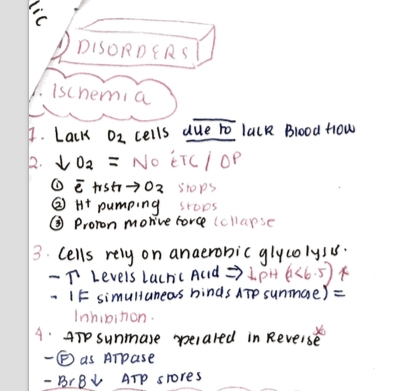 lic
DISORDERS
1. Ischemia
1. Lack O2 cells due to lack Blood flow
2. ↓ O2 = No ETC / OP
① ē trstr → O2 stops
② H+ pumping stops
③ Proton motive force collapse
3. Cells rely on anaerobic glycolysis.
- ↑ Levels Lactic Acid ⇒ ↓pH (<6.5)
- IF simultaneous binds ATP sunmase) =
Inhibition.
4. ATP sunmase operated in Reverse*
- as ATPase
- ↓ ATP stores